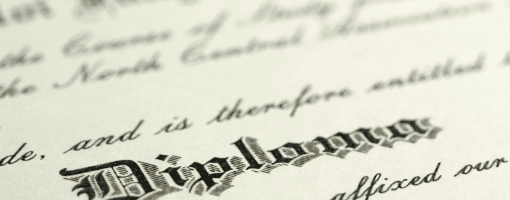 the Course of Study
the North Central Association
de, and is therefore entitled
Diploma
affixed our